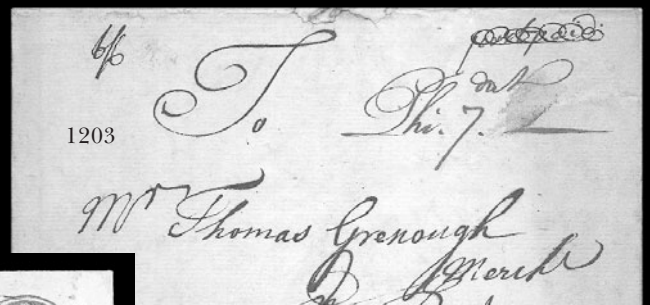 6/6
To
dwt
Phi. 7.
1203
Mr Thomas Grenough
Mercht